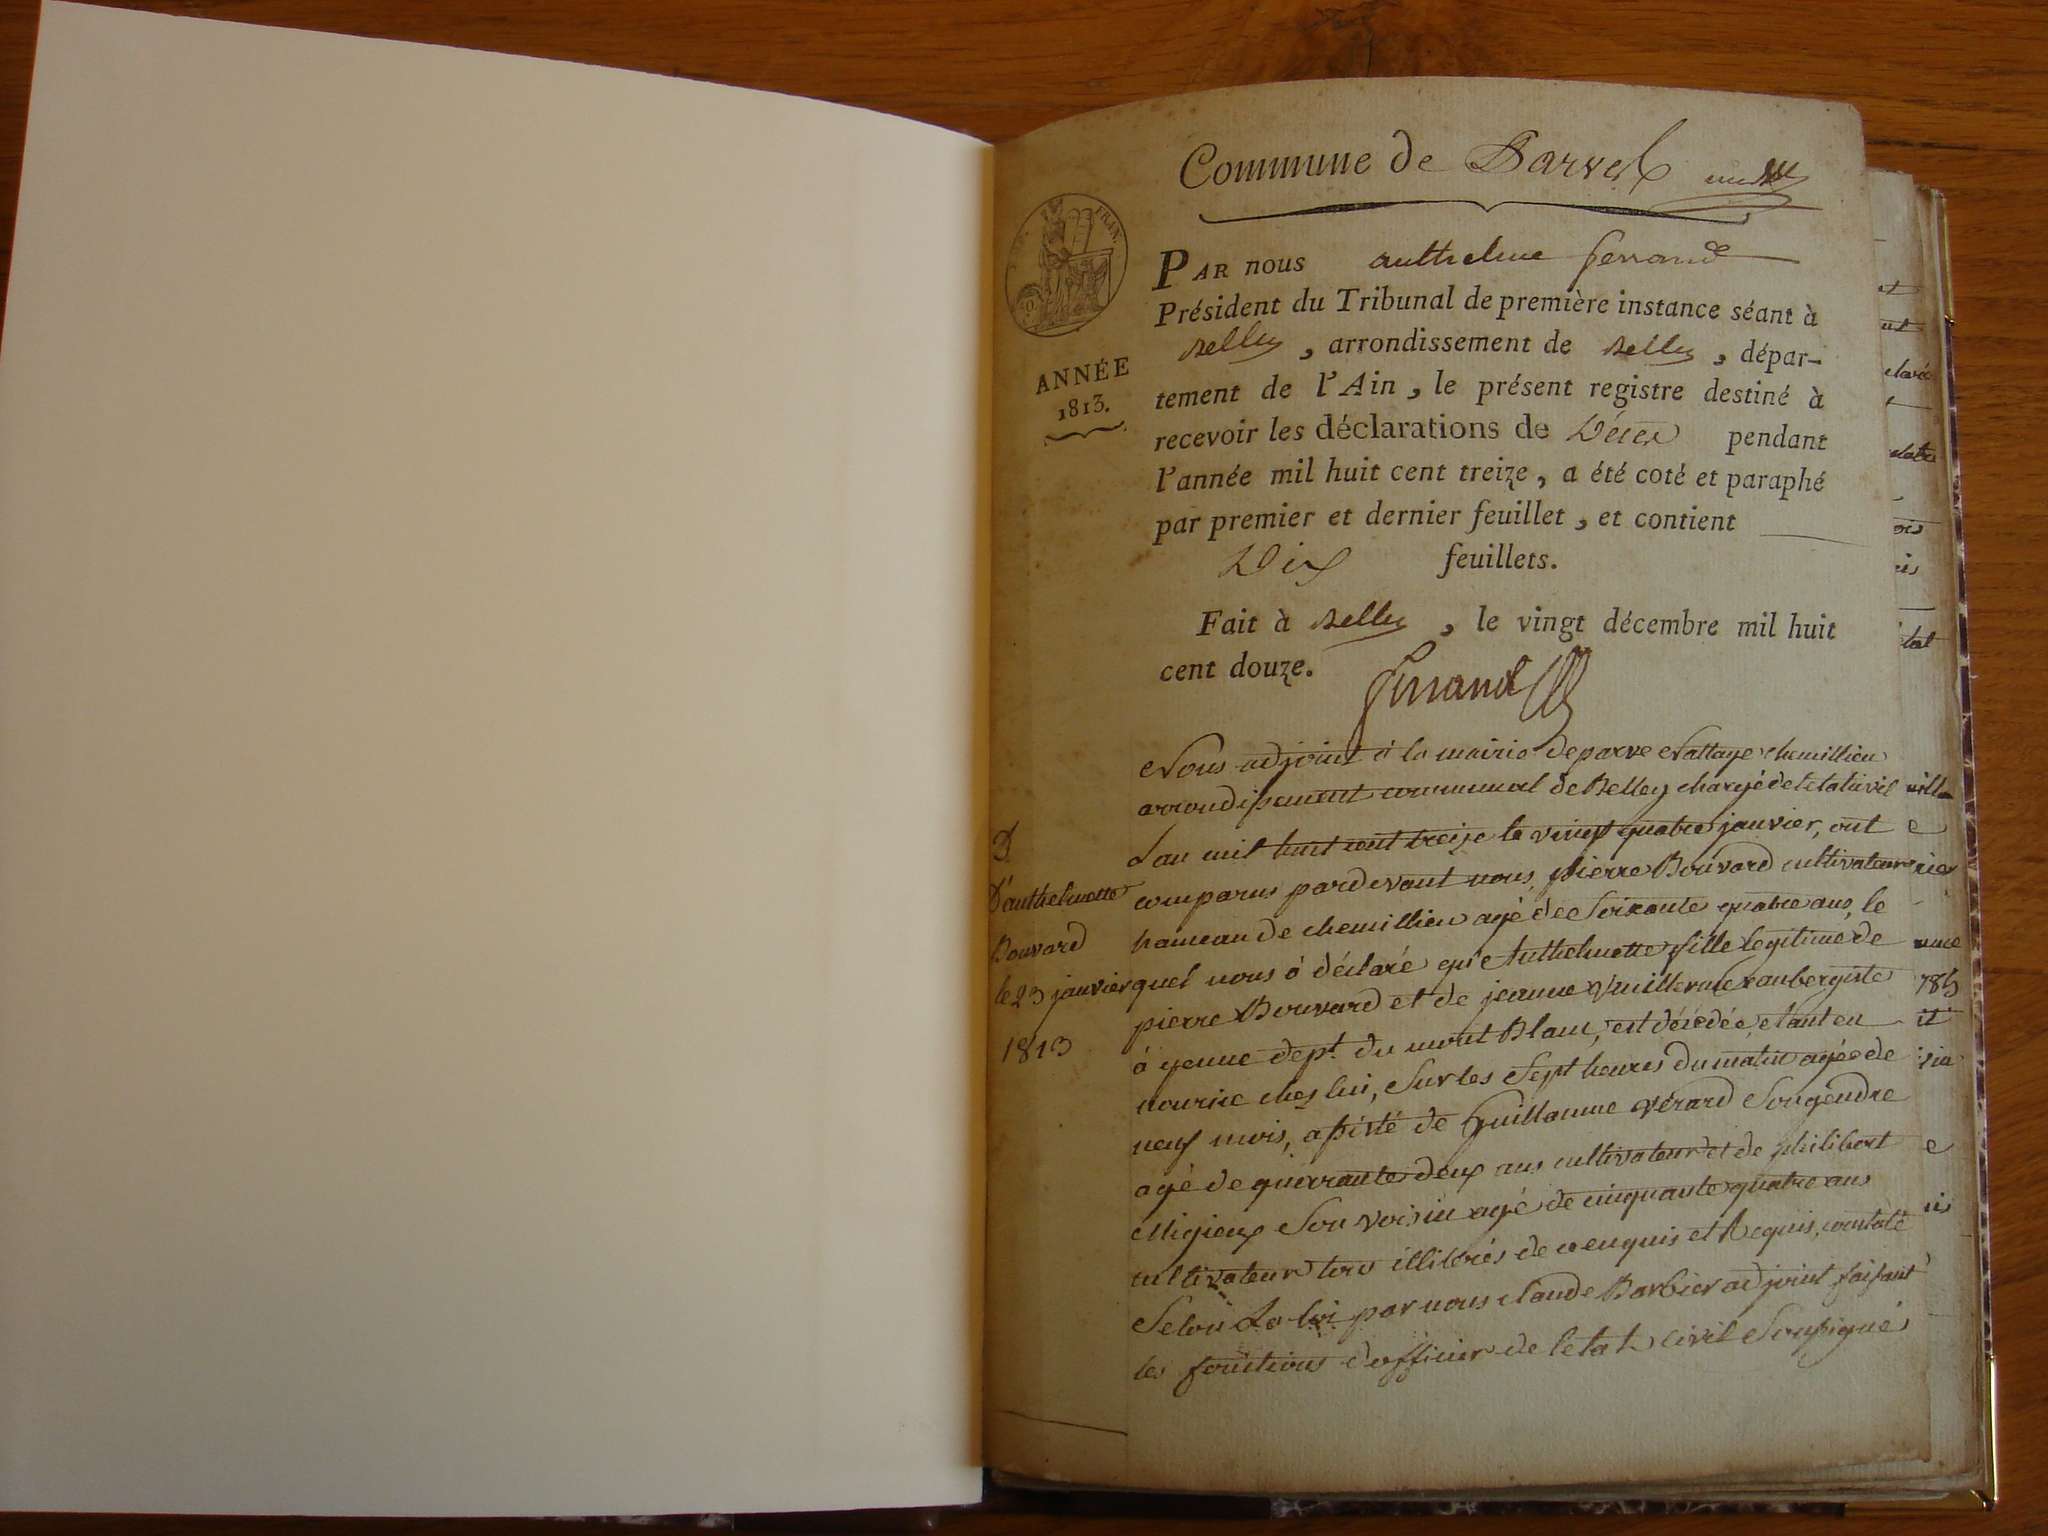 Commune de Parves
FRAN.
ANNÉE
1813.
PAR nous anthelme ferrand
Président du Tribunal de première instance séant à
Belley, arrondissement de Belley, dépar-
tement de l'Ain, le présent registre destiné à
recevoir les déclarations de Décès pendant
l'année mil huit cent treize, a été coté et paraphé
par premier et dernier feuillet, et contient
Dix feuillets.
Fait à Belley, le vingt décembre mil huit
cent douze.
ferrand
D'anthelmette
Bouvard
le 23 janvier
1813
Nous adjoint à la mairie de parve Nattage chemillieu
arrondissement communal de Belley chargé de letat civil
Lan mil huit cent treize le vingt quatre janvier, ont
comparus pardevant nous, pierre Bouvard cultivateur
hameau de chemillieu agé de Soixante quatre ans, le
quel nous à déclaré que Anthelmette fille legitime de
pierre Bouvard et de jeanne aubergiste
à yenne dept. du mont Blanc, est décedée, etant en
nourice chez lui, Sur les Sept heures du matin agée de
neuf mois, assisté de Guillaume vérard Son gendre
agé de quarrante deux ans cultivateur et de philibert
Migieux Son voisin agé de cinquante quatre ans
cultivateur tous illiterés de ce enquis et Requis, constaté
Selon La loi par nous claude Barbier adjoint faisant
les fonctions dofficier de letat civil Soussigné